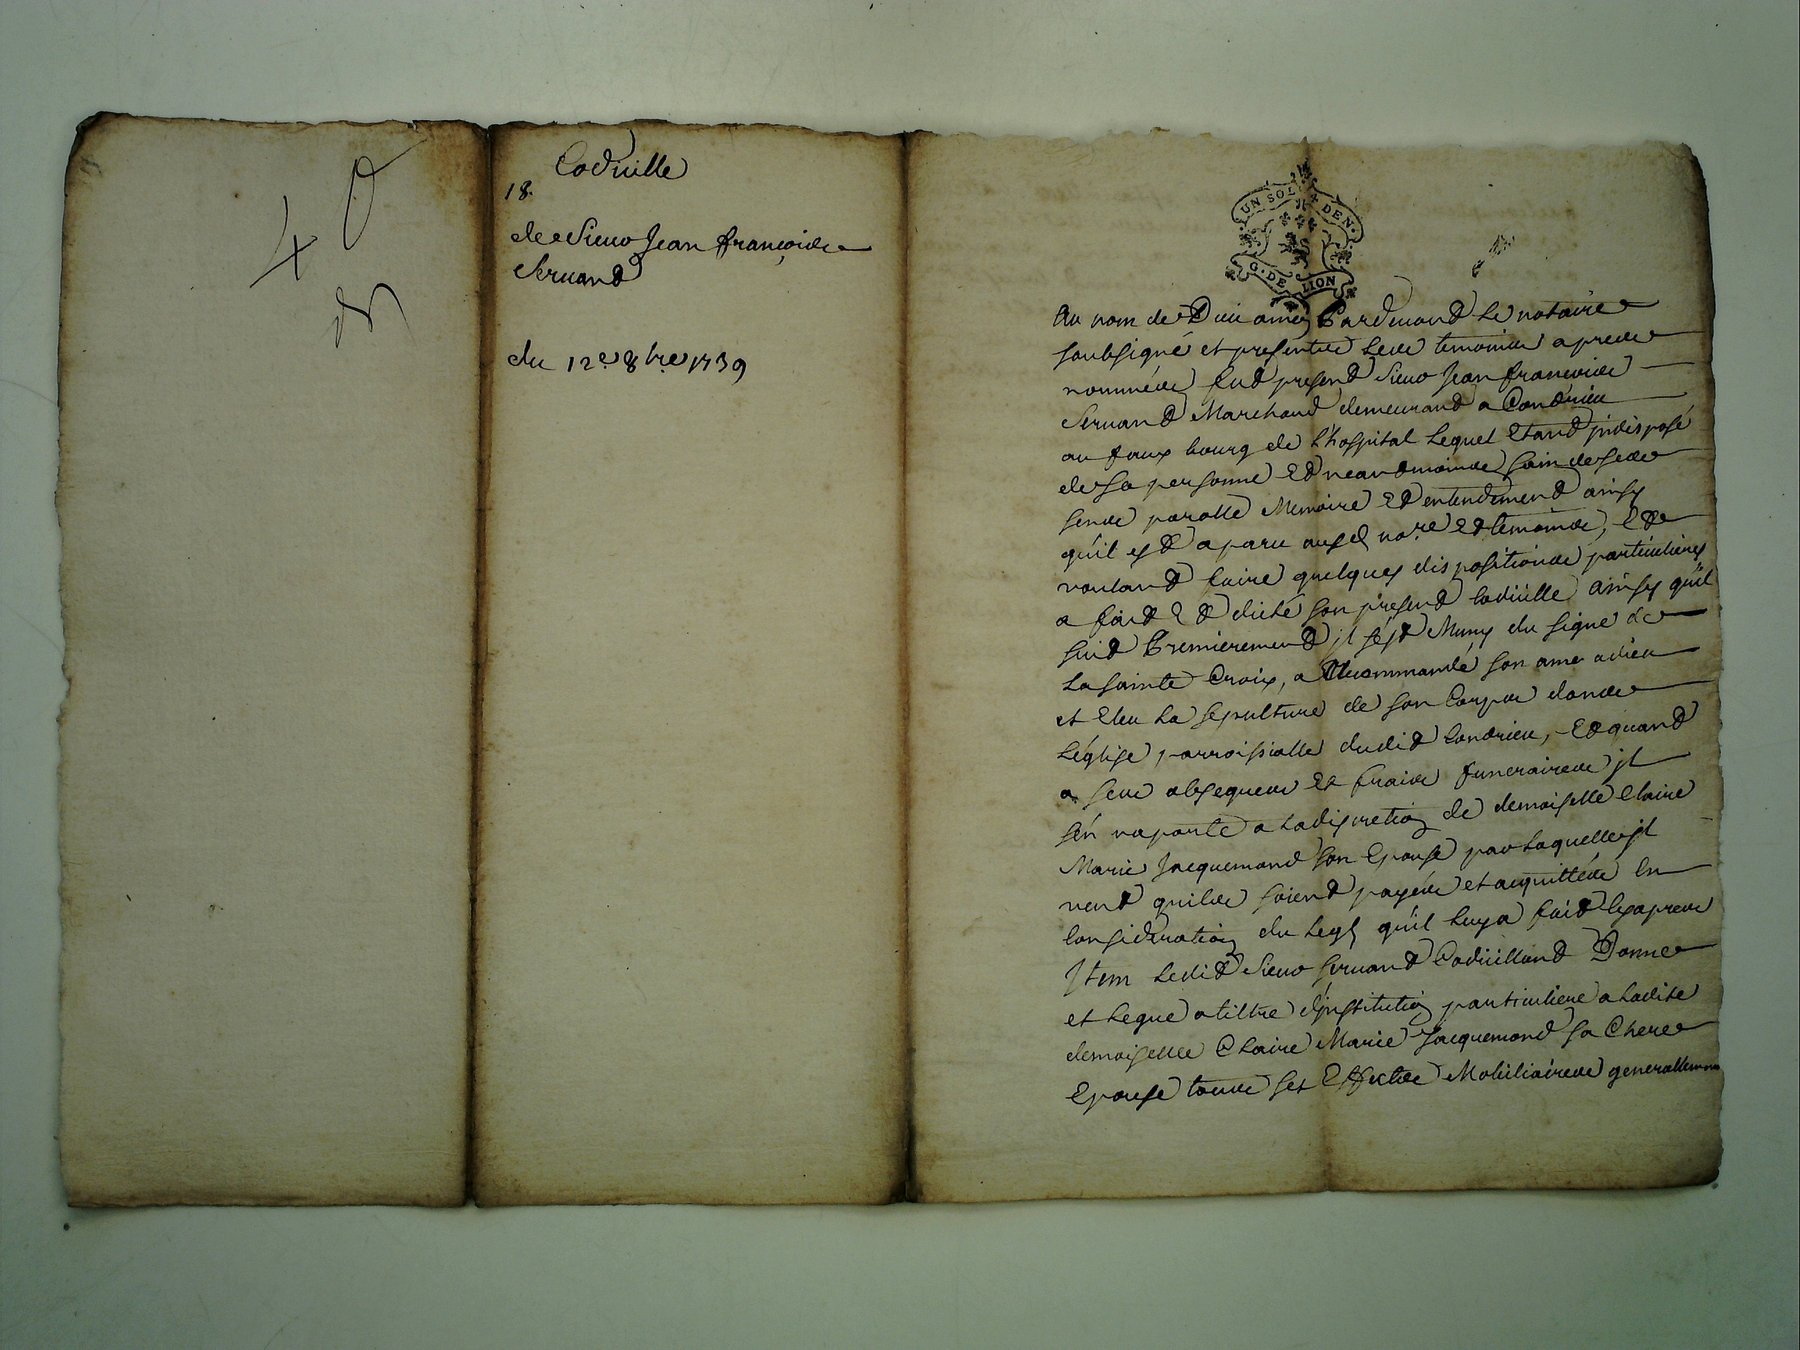 4
Codicille
18.
de Sieur Jean françois
Servand
du 12e 8bre 1739
UN SOL DEN.
G. DE LION
Au nom de Dieu amen Pardevand le notaire
soubsigné et presents les temoins apres
nommés fut presend Sieur Jean françois
Servand Marchand demeurand a Condrieu
au faux bourg de l'hospital lequel Etand indisposé
de sa personne Et neandmoins sain de ses
sens parolle Memoire Et entendement ainsy
qu'il est aparu auxd. nore Et temoins, Et
vouland faire quelques dispositions particulieres
a fait Et dicté son presend codicille ainsy qu'il
suit Premierement il s'est Muny du signe de
la sainte Croix, a Recommandé son ame a dieu
et Eleu la sepulture de son Corps dans
l'église parroissialle dudit Condrieu, Et quand
a ses obseques Et frais funeraires il
s'en raporte a la discretion de demoiselle Claire
Marie Jacquemond son Epouse par laquelle il
veut qu'ils soiend payés et acquittés En
Consideration du legs qu'il luy a fait Cy apres
Item ledit Sieur Servand Codicilland Donne
et legue a tiltre d'institution particuliere a ladite
demoiselle Claire Marie Jacquemond sa Chere
Epouse tous ses Effects Mobiliaires generallement